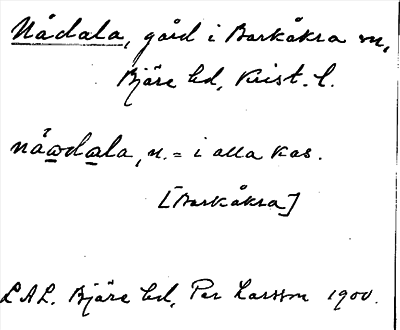 Nådala, gård i Barkåkra sn,
Bjäre hd, Krist. l.
nåωdαla, n. = i alla kas.
[Barkåkra]
LAL. Bjäre hd, Per Larsson 1900.